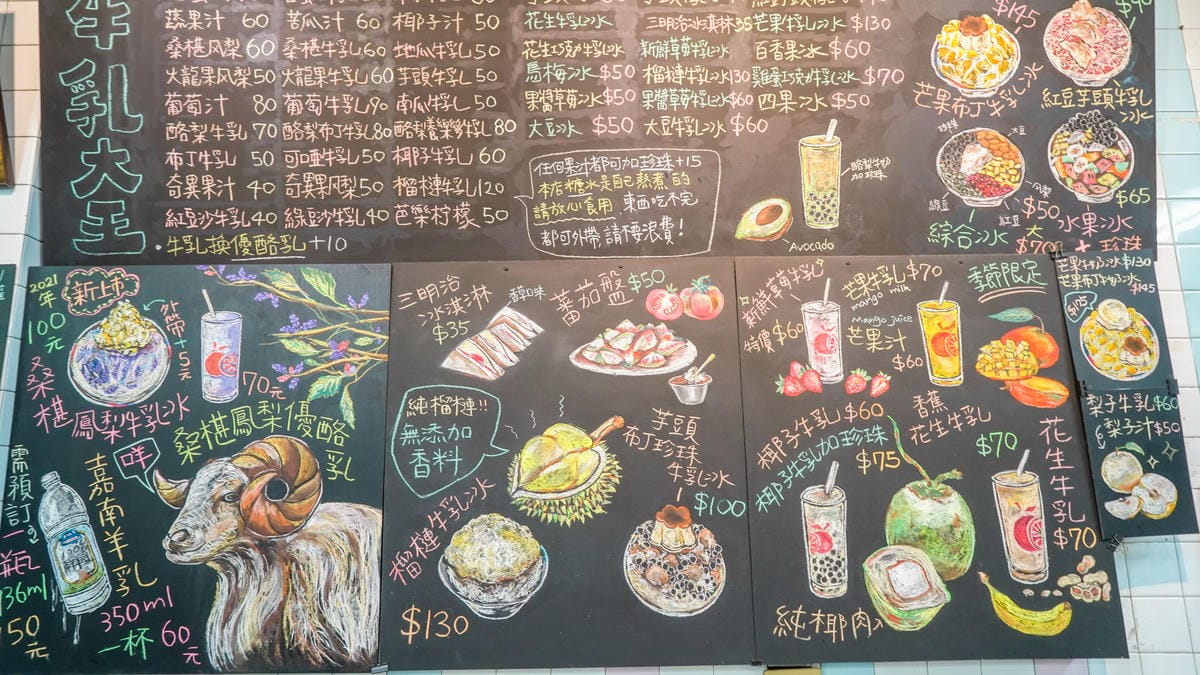 牛乳大王
蔬果汁 60 苦瓜汁 60 椰子汁 60
桑椹风梨 60 桑椹牛乳 60 地瓜牛乳 50
火龍果风梨 50 火龍果牛乳 60 芋頭牛乳 50
葡萄汁 80 葡萄牛乳 90 南瓜牛乳 50
酪梨牛乳 70 酪梨布丁牛乳 80 酪梨養樂多牛乳 80
布丁牛乳 50 可口亜牛乳 50 椰子牛乳 60
奇異果汁 40 奇異果风梨 50 榴槤牛乳 120
紅豆沙牛乳 40 綠豆沙牛乳 40 芭樂柠檬 50
·牛乳換優酪乳 +10
花生牛乳冰
花生巧克力牛乳冰
烏梅冰 $50
果醬草莓冰 $50
大豆冰 $50
三明治冰淇淋 35 芒果牛乳冰 $130
新鮮草莓牛乳冰 百香果冰 $60
榴槤牛乳冰 130 雞蛋巧克力牛乳冰 $70
果醬草莓牛乳冰 $60 四果冰 $50
大豆牛乳冰 $60
任何果汁都可加珍珠+15
本店糖水是自己熬煮的
請放心食用 東西吃不完
都可外帶請勿浪費!
酪梨牛奶
加珍珠
Avocado
$145
芒果布丁牛乳冰
$90
紅豆芋頭牛乳冰
珍珠
大豆
綠豆
紅豆
风梨
$50
綜合冰 大 $70
$65
水果冰
+珍珠
2021年
新上市
100元
外帶+5元
桑椹鳳梨牛乳冰
70元
桑椹鳳梨優酪乳
咩
需預訂
一瓶
936ml
150元
嘉南羊乳
350ml
一杯60元
三明治
冰淇淋
$35
蕃茄盤
$50
純榴槤!!
無添加
香料
榴槤牛乳冰
$130
芋頭
布丁珍珠
牛乳冰
$100
新鮮草莓牛乳
特價 $60
芒果牛乳 $70
mango milk
mango juice
芒果汁
$60
季節限定
椰子牛乳 $60
椰子牛乳加珍珠
$75
純椰肉
香蕉
花生牛乳
$70
花生牛乳
$70
芒果牛奶冰 $130
芒果布丁牛奶冰
$145
梨子牛乳 $60
梨子汁 $50